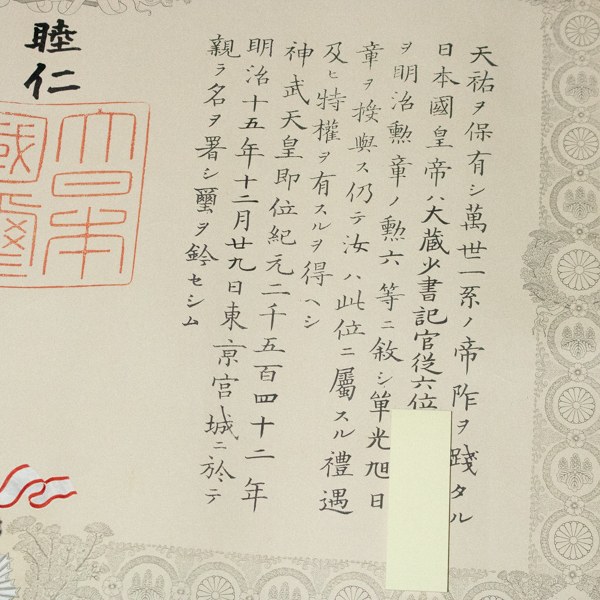 天祐ヲ保有シ萬世一系ノ帝祚ヲ踐タル
日本國皇帝ハ大蔵少書記官従六位
ヲ明治勲章ノ勲六等ニ敘シ單光旭日
章ヲ授與ス仍テ汝ハ此位ニ屬スル禮遇
及ヒ特權ヲ有スルヲ得ヘシ
神武天皇即位紀元二千五百四十二年
明治十五年十二月廿九日東京宮城ニ於テ
親ラ名ヲ署シ璽ヲ鈐セシム
睦仁
大日本
國璽